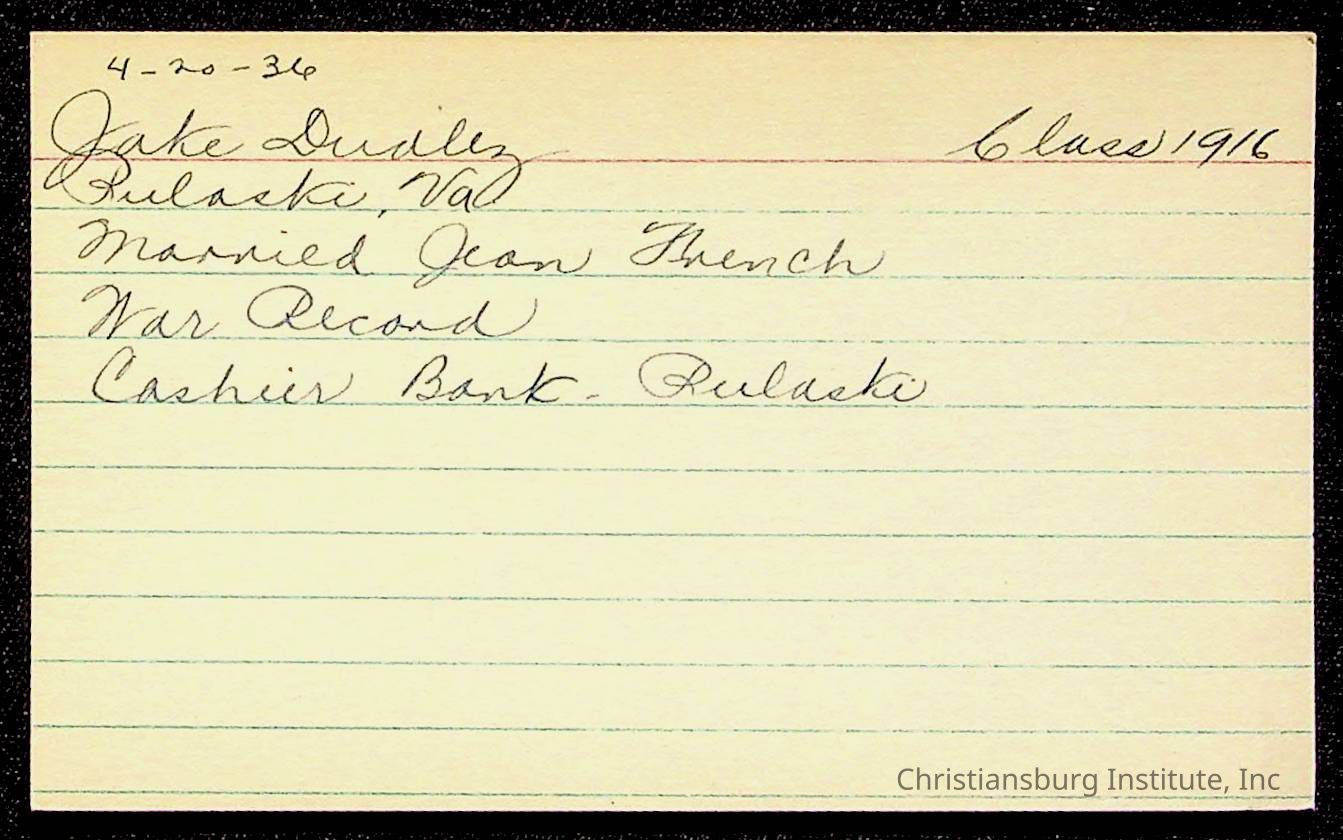 4-20-36
Jake Dudley Class 1916
Pulaski, Va
Married Jean French
War Record
Cashier Bank - Pulaski
Christiansburg Institute, Inc